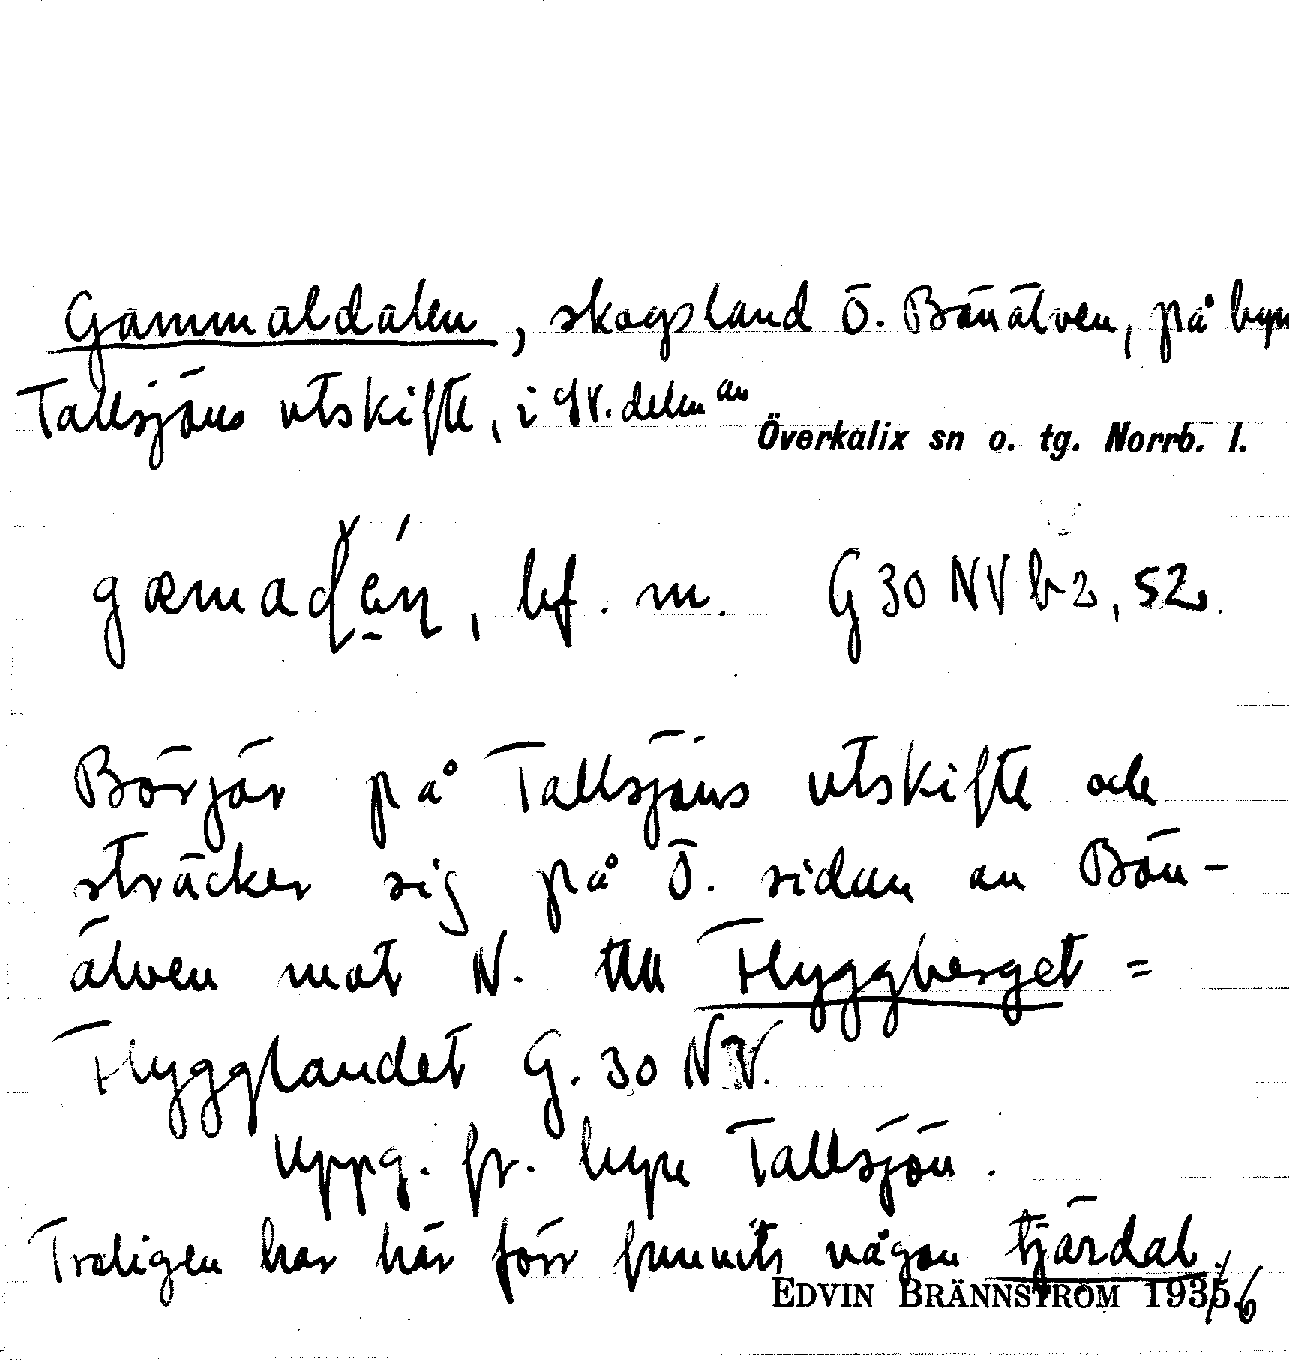 Gammaldalen, skogsland Ö. Bönälven, på byn
Tallsjöns utskifte, i NV. delen av
Överkalix sn o. tg. Norrb. l.
bf. m. G 30 NV b 2, 52.
Börjar på Tallsjöns utskifte och
sträcker sig på Ö. sidan av Bön-
älven mot N. till Flyggberget =
Flygglandet G. 30 NV.
Uppg. fr. byn Tallsjön.
Troligen har här förr funnits någon tjärdal.
EDVIN BRÄNNSTRÖM 1935/6